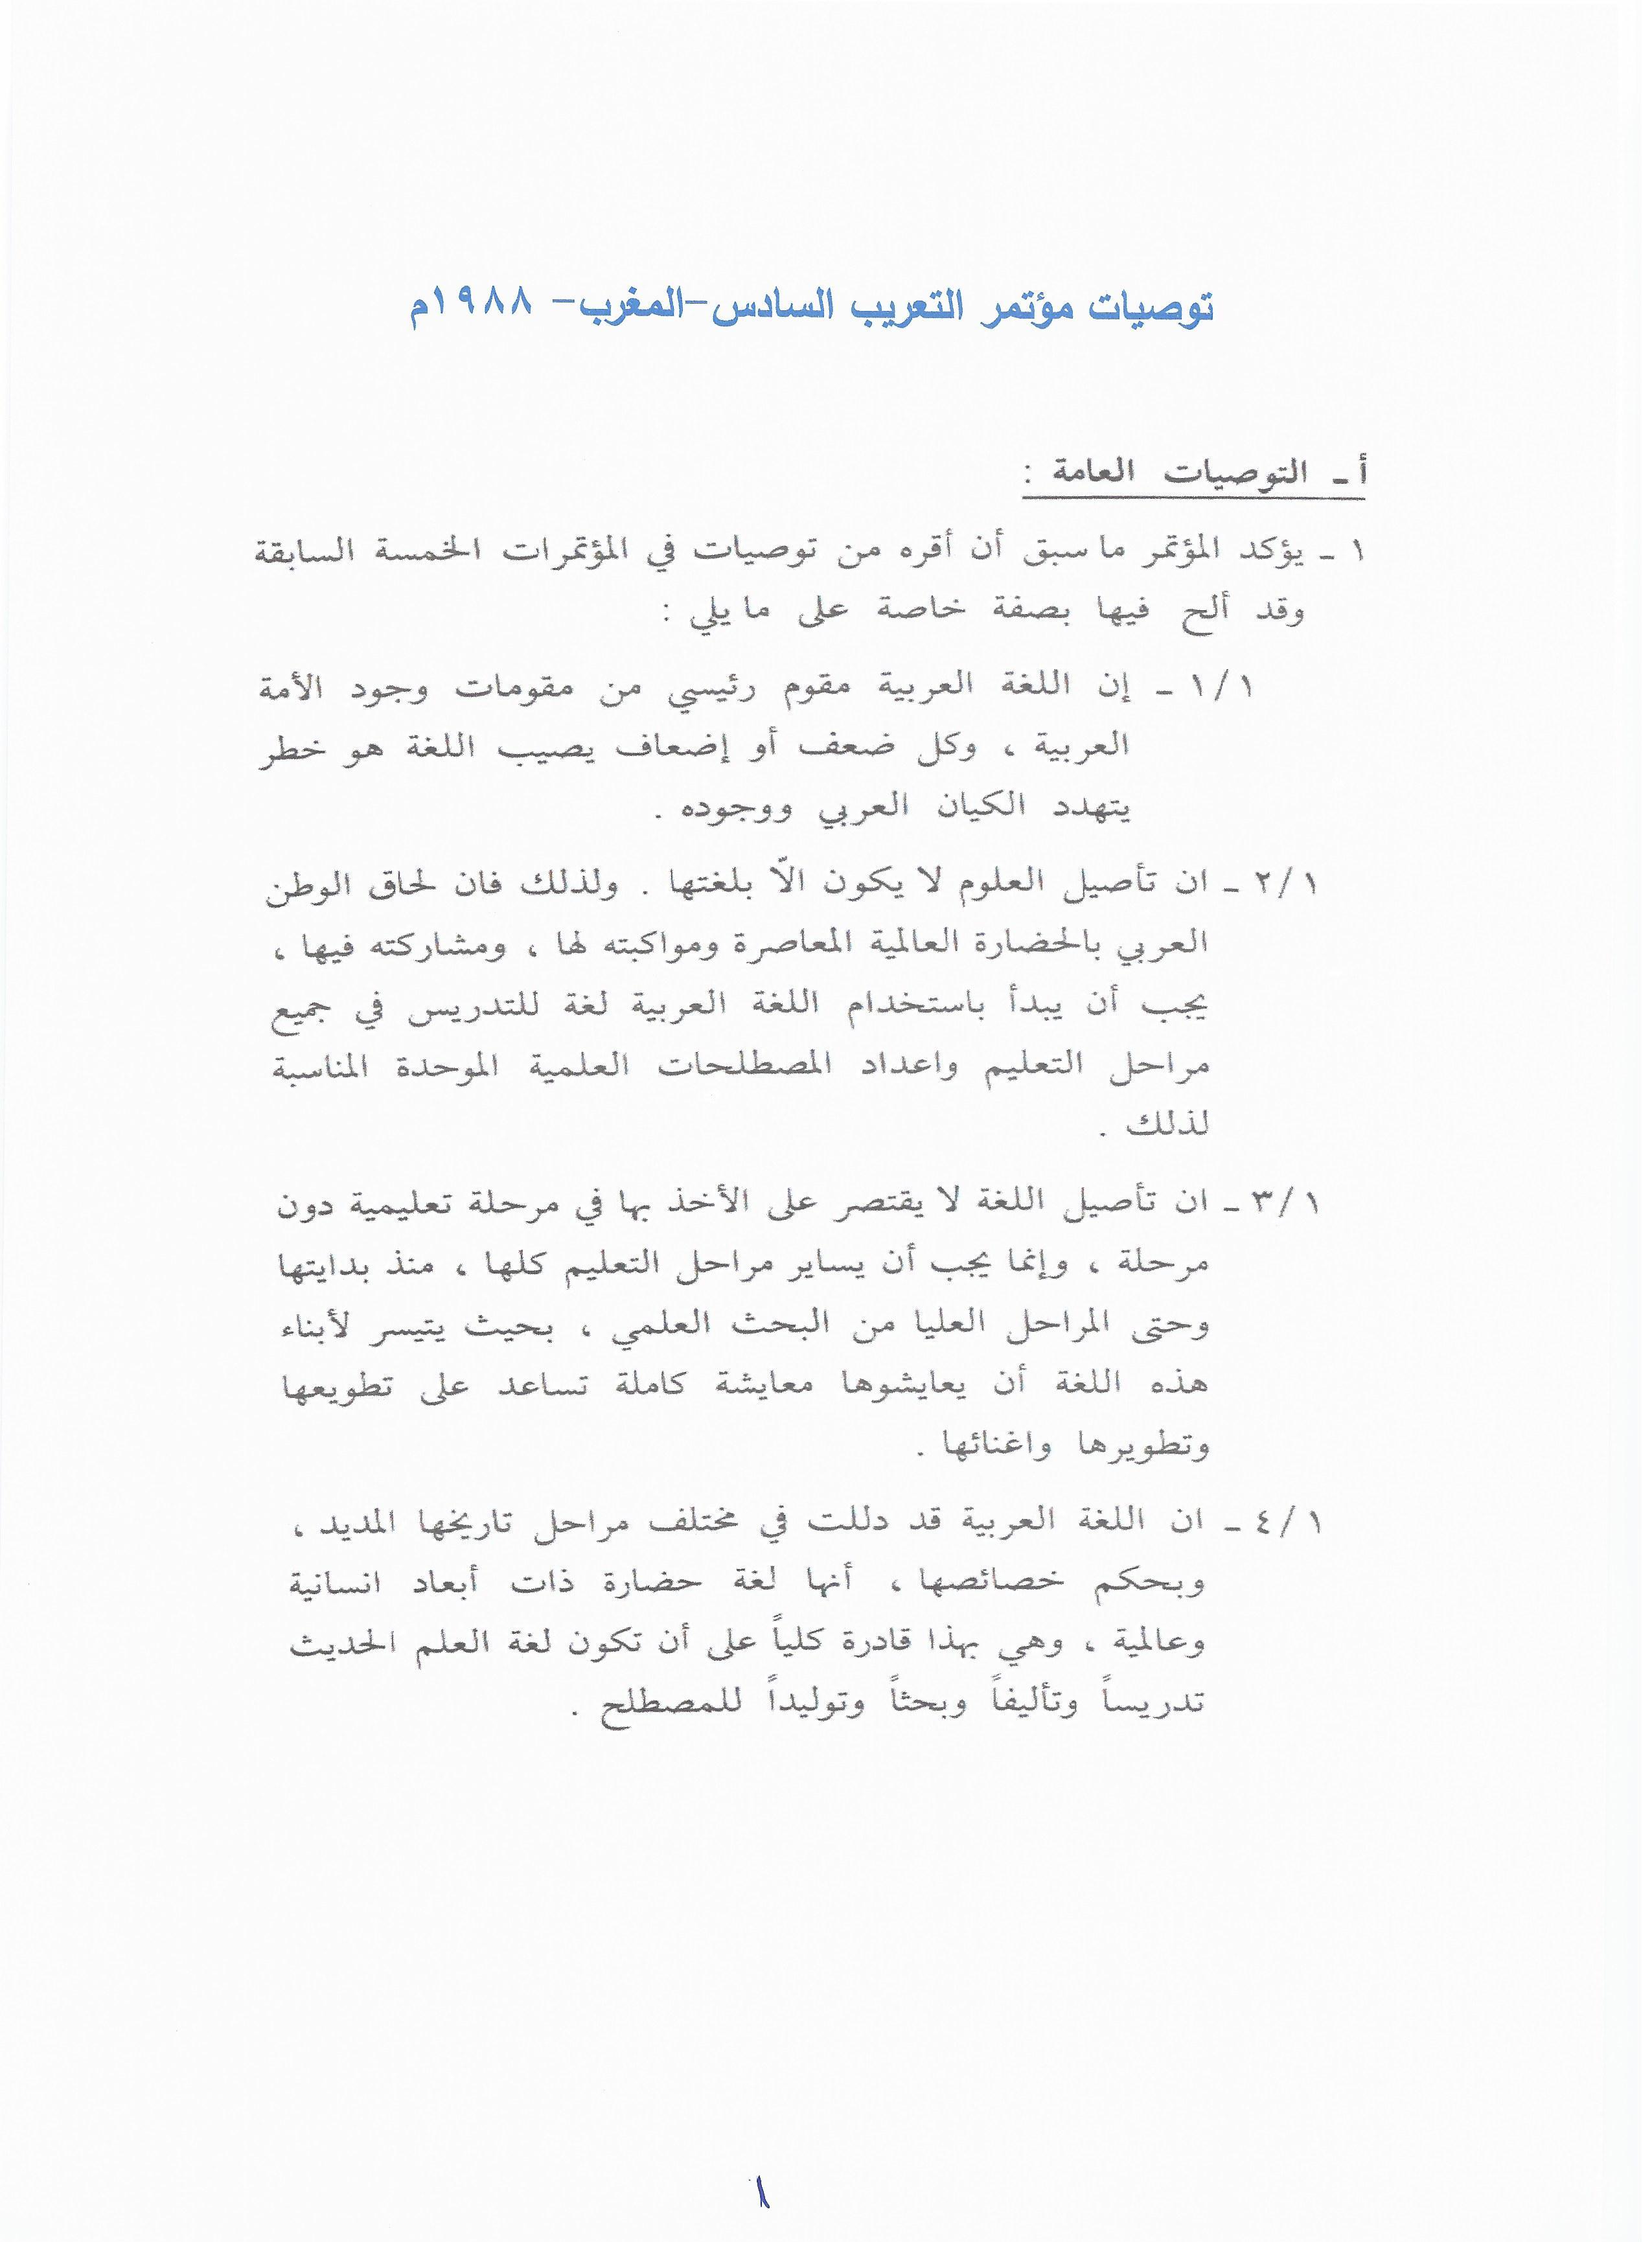 توصيات مؤتمر التعريب السادس-المغرب- ١٩٨٨م
أ ـ التوصيات العامة :
١ ـ يؤكد المؤتمر ما سبق أن أقره من توصيات في المؤتمرات الخمسة السابقة
وقد ألح فيها بصفة خاصة على ما يلي :
١/١ ـ إن اللغة العربية مقوم رئيسي من مقومات وجود الأمة
العربية ، وكل ضعف أو إضعاف يصيب اللغة هو خطر
يتهدد الكيان العربي ووجوده .
٢/١ ـ ان تأصيل العلوم لا يكون الاّ بلغتها . ولذلك فان لحاق الوطن
العربي بالحضارة العالمية المعاصرة ومواكبته لها ، ومشاركته فيها ،
يجب أن يبدأ باستخدام اللغة العربية لغة للتدريس في جميع
مراحل التعليم واعداد المصطلحات العلمية الموحدة المناسبة
لذلك .
٣/١ ـ ان تأصيل اللغة لا يقتصر على الأخذ بها في مرحلة تعليمية دون
مرحلة ، وإنما يجب أن يساير مراحل التعليم كلها ، منذ بدايتها
وحتى المراحل العليا من البحث العلمي ، بحيث يتيسر لأبناء
هذه اللغة أن يعايشوها معايشة كاملة تساعد على تطويعها
وتطويرها واغنائها .
٤/١ ـ ان اللغة العربية قد دللت في مختلف مراحل تاريخها المديد ،
وبحكم خصائصها ، أنها لغة حضارة ذات أبعاد انسانية
وعالمية ، وهي بهذا قادرة كلياً على أن تكون لغة العلم الحديث
تدريساً وتأليفاً وبحثاً وتوليداً للمصطلح .
١